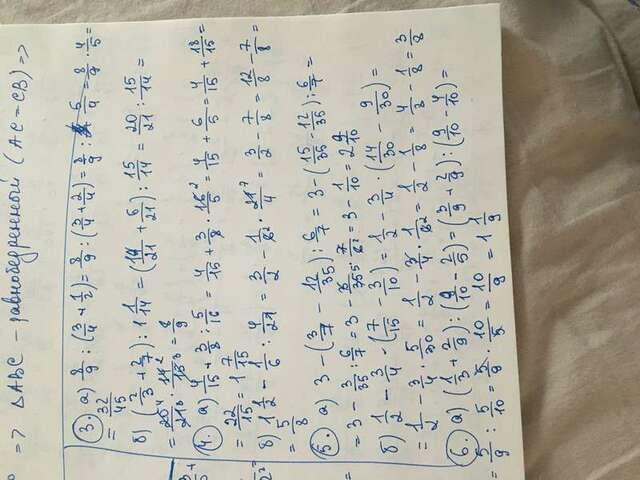 => ΔABC – равнобедренный (AC=CB) =>
3. а) 8/9 : (3/4 + 1/2) = 8/9 : (3/4 + 2/4) = 8/9 : 5/4 = 8/9 · 4/5 =
= 32/45
б) (2/3 + 2/7) : 1 1/14 = (14/21 + 6/21) : 15/14 = 20/21 : 15/14
= 20⁴/21₃ · 14²/15₃ = 8/9
4. а) 4/15 + 3/8 : 5/16 = 4/15 + 3/8 · 16²/5 = 4/15 + 6/5 = 4/15 + 18/15
= 22/15 = 1 7/15
б) 1 1/2 - 1/6 : 4/21 = 3/2 - 1/6₂ · 21⁷/4 = 3/2 - 7/8 = 12/8 - 7/8
= 5/8
5. а) 3 - (3/7 - 12/35) : 6/7 = 3 - (15/35 - 12/35) : 6/7
= 3 - 3/35 : 6/7 = 3 - 3/35₅ · 7/6₂ = 3 - 1/10 = 2 9/10
б) 1/2 - 3/4 · (7/15 - 3/10) = 1/2 - 3/4 · (14/30 - 9/30) =
= 1/2 - 3/4 · 5/30 = 1/2 - 3/4 · 1/6₂ = 1/2 - 1/8 = 4/8 - 1/8 = 3/8
6. а) (1/3 + 2/9) : (9/10 - 2/5) = (3/9 + 2/9) : (9/10 - 4/10) =
= 5/9 : 5/10 = 5/9 · 10/5 = 10/9 = 1 1/9